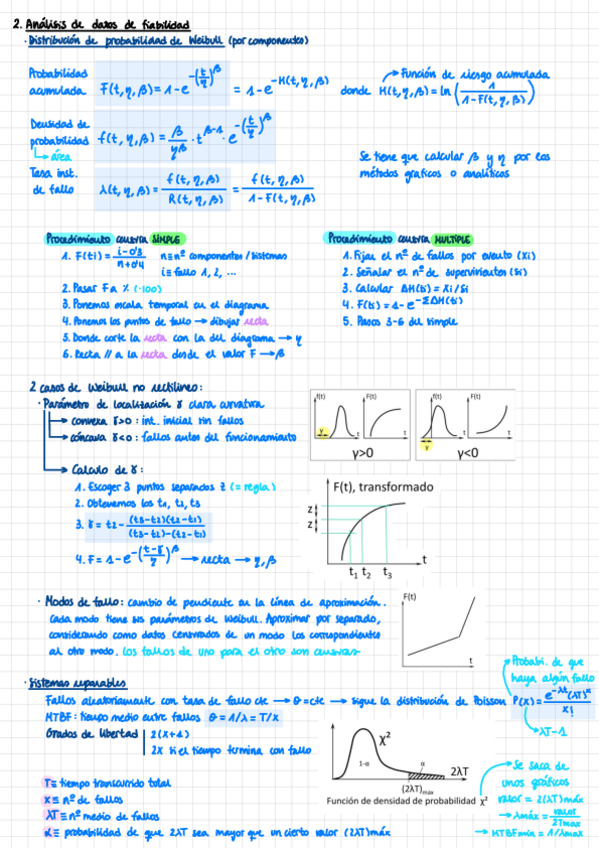 2. Análisis de datos de fiabilidad
· Distribución de probabilidad de Weibull (por componentes)
Probabilidad acumulada F(t, η, β) = 1-e^-(t/η)^β = 1-e^-H(t, η, β) donde H(t, η, β) = ln (1/(1-F(t, η, β)))
→ Función de riesgo acumulada
Densidad de probabilidad f(t, η, β) = β/ηβ · t^β-1 · e^-(t/η)^β
↳ área
Se tiene que calcular β y η por los métodos gráficos o analíticos
Tasa inst. de fallo λ(t, η, β) = f(t, η, β)/R(t, η, β) = f(t, η, β)/(1-F(t, η, β))
Procedimiento censura SIMPLE
1. F(ti) = (i-0'3)/(n+0'4) n≡nº componentes/sistemas
i≡fallo 1, 2, ...
2. Pasar F a % (·100)
3. Ponemos escala temporal en el diagrama
4. Ponemos los puntos de fallo → dibujar recta
5. Donde corte la recta con la del diagrama → η
6. Recta // a la recta desde el valor F → β
Procedimiento censura MULTIPLE
1. Fijar el nº de fallos por evento (Xi)
2. Señalar el nº de supervivientes (Si)
3. Calcular ΔH(ti) = Xi/Si
4. F(ti) = 1-e^-ΣΔH(ti)
5. Pasos 3-6 del simple
2 casos de Weibull no rectilineo:
· Parámetro de localización γ clara curvatura
→ convexa γ>0: int. inicial sin fallos
→ cóncava γ<0: fallos antes del funcionamiento
f(t) F(t) γ t t
γ>0
f(t) F(t) γ t t
γ<0
→ Calculo de γ:
1. Escoger 3 puntos separados z (= regla)
2. Obtenemos los t1, t2, t3
3. γ = t2 - (t3-t2)(t2-t1)/((t3-t2)-(t2-t1))
4. F = 1-e^-((t-γ)/η)^β → recta → η, β
F(t), transformado
z
z
t1 t2 t3
t
· Modos de fallo: cambio de pendiente en la línea de aproximación.
Cada modo tiene sus parámetros de Weibull. Aproximar por separado,
considerando como datos censurados de un modo los correspondientes
al otro modo. Los fallos de uno para el otro son censuras
F(t)
t
· Sistemas reparables
Fallos aleatoriamente con tasa de fallo cte → θ=cte → sigue la distribución de Poisson P(x) = e^-λt (λT)^x / x!
→ Probabi. de que haya algún fallo
→ λT-1
MTBF: tiempo medio entre fallos θ = 1/λ = T/x
Grados de libertad | 2(x+1)
2x si el tiempo termina con fallo
χ²
1-α
α
2λT
(2λT)max
Función de densidad de probabilidad χ²
→ Se saca de unos gráficos
valor = 2(λT)máx
→ λmáx = valor/2Tmax
→ MTBFmin = 1/λmax
T≡ tiempo transcurrido total
x≡ nº de fallos
λT≡ nº medio de fallos
α≡ probabilidad de que 2λT sea mayor que un cierto valor (2λT)máx